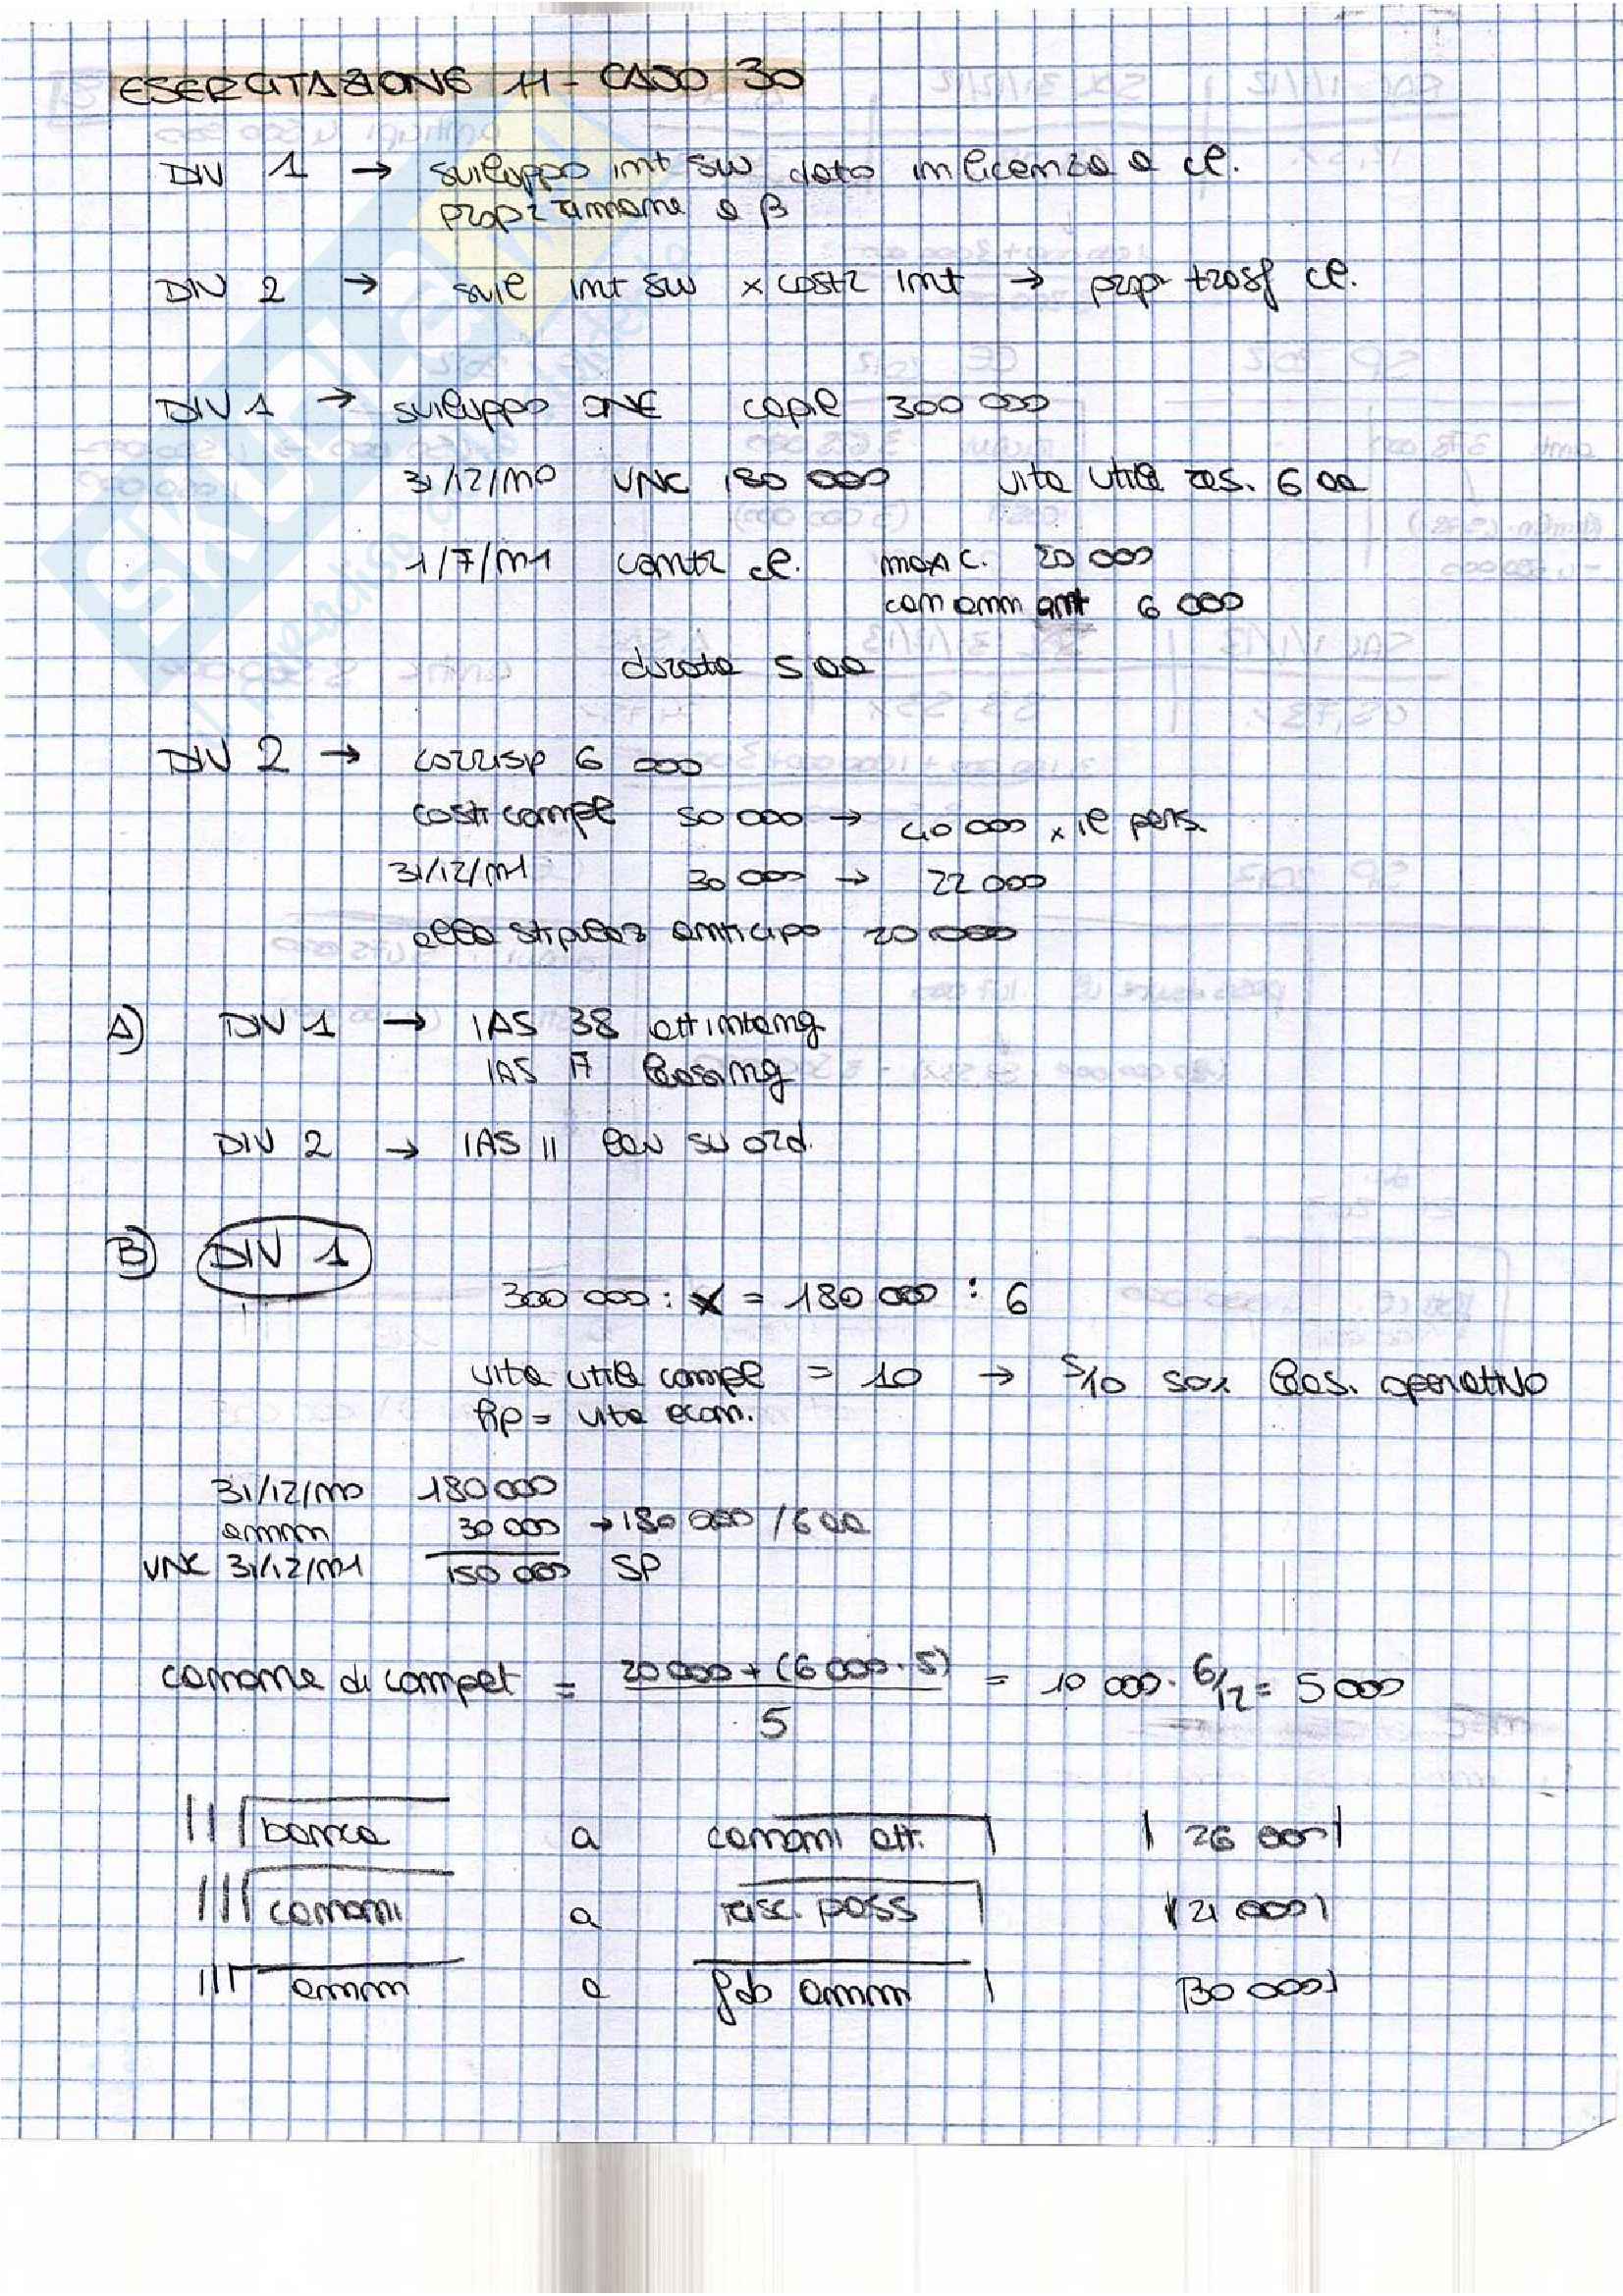 ESERCITAZIONE 11 - CASO 30
DIV 1 → sviluppo int sw dato in licenza a cl.
propr rimane a β
DIV 2 → svil int sw x costr int → propr trasf cl.
DIV 1 → sviluppo ONE capil 300 000
31/12/n0 VNC 180 000 vita utile res. 6 aa
1/7/n1 contr cl. maxi c. 20 000
can ann ant 6 000
durata 5 aa
DIV 2 → corrisp 6 000
costi compl 50 000 → 40 000 x il pers.
31/12/n1 30 000 → 22 000
alla stipulaz anticipo 20 000
A) DIV 1 → IAS 38 att intang
IAS 17 leasing
DIV 2 → IAS 11 lav su ord.
B) DIV 1
300 000 : x = 180 000 : 6
vita utile compl = 10 → 5/10 sarà leas. operativo
hp = vita econ.
31/12/n0 180 000
amm 30 000 → 180 000 / 6 aa
VNC 31/12/n1 150 000 SP
canone di compet = 20 000 + (6 000 · 5) / 5 = 10 000 · 6/12 = 5 000
banca a canoni att. 26 000
canoni a risc. pass 21 000
amm a fdo amm 30 000